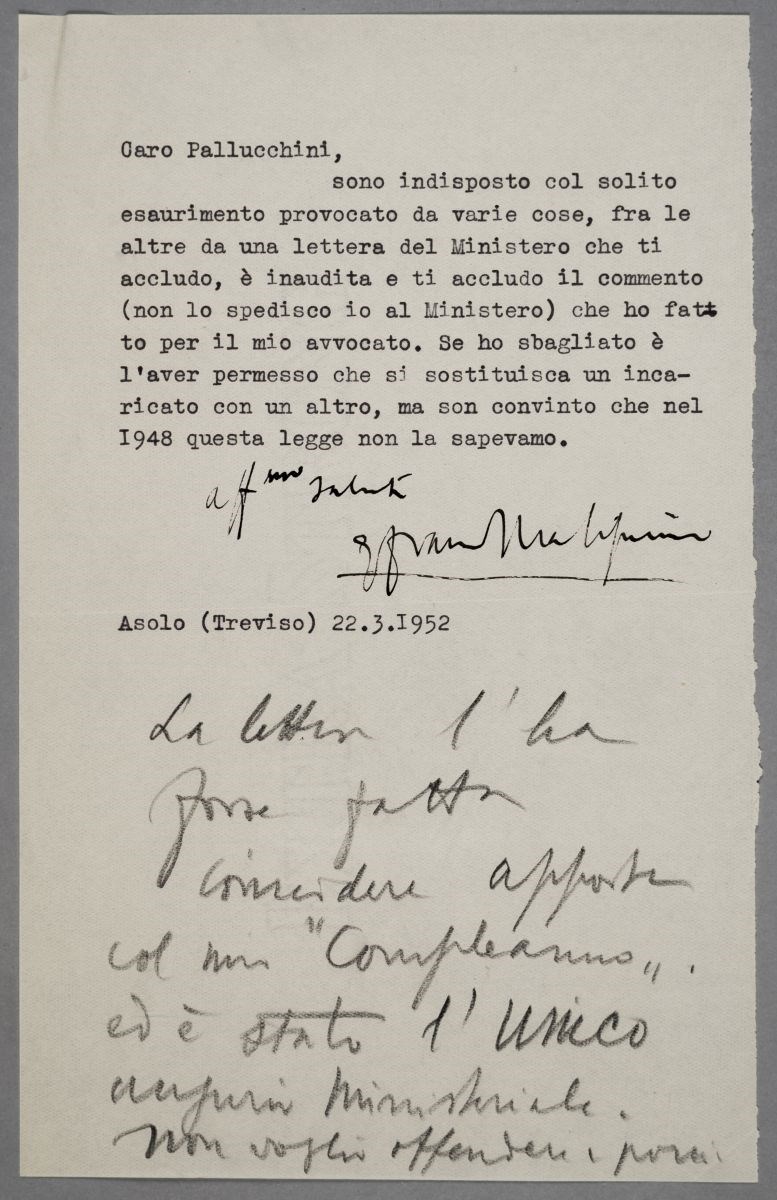 Caro Pallucchini,
sono indisposto col solito
esaurimento provocato da varie cose, fra le
altre da una lettera del Ministero che ti
accludo, è inaudita e ti accludo il commento
(non lo spedisco io al Ministero) che ho fatt
to per il mio avvocato. Se ho sbagliato è
l'aver permesso che si sostituisca un inca-
ricato con un altro, ma son convinto che nel
I948 questa legge non la sapevamo.
aff mo saluti
gfranc Malipiero
Asolo (Treviso) 22.3.I952
La lettera l'ha
forse fatta
coincidere apposta
col mio "Compleanno„.
ed è stato l'unico
augurio Ministeriale.
Non voglio offendere i porci